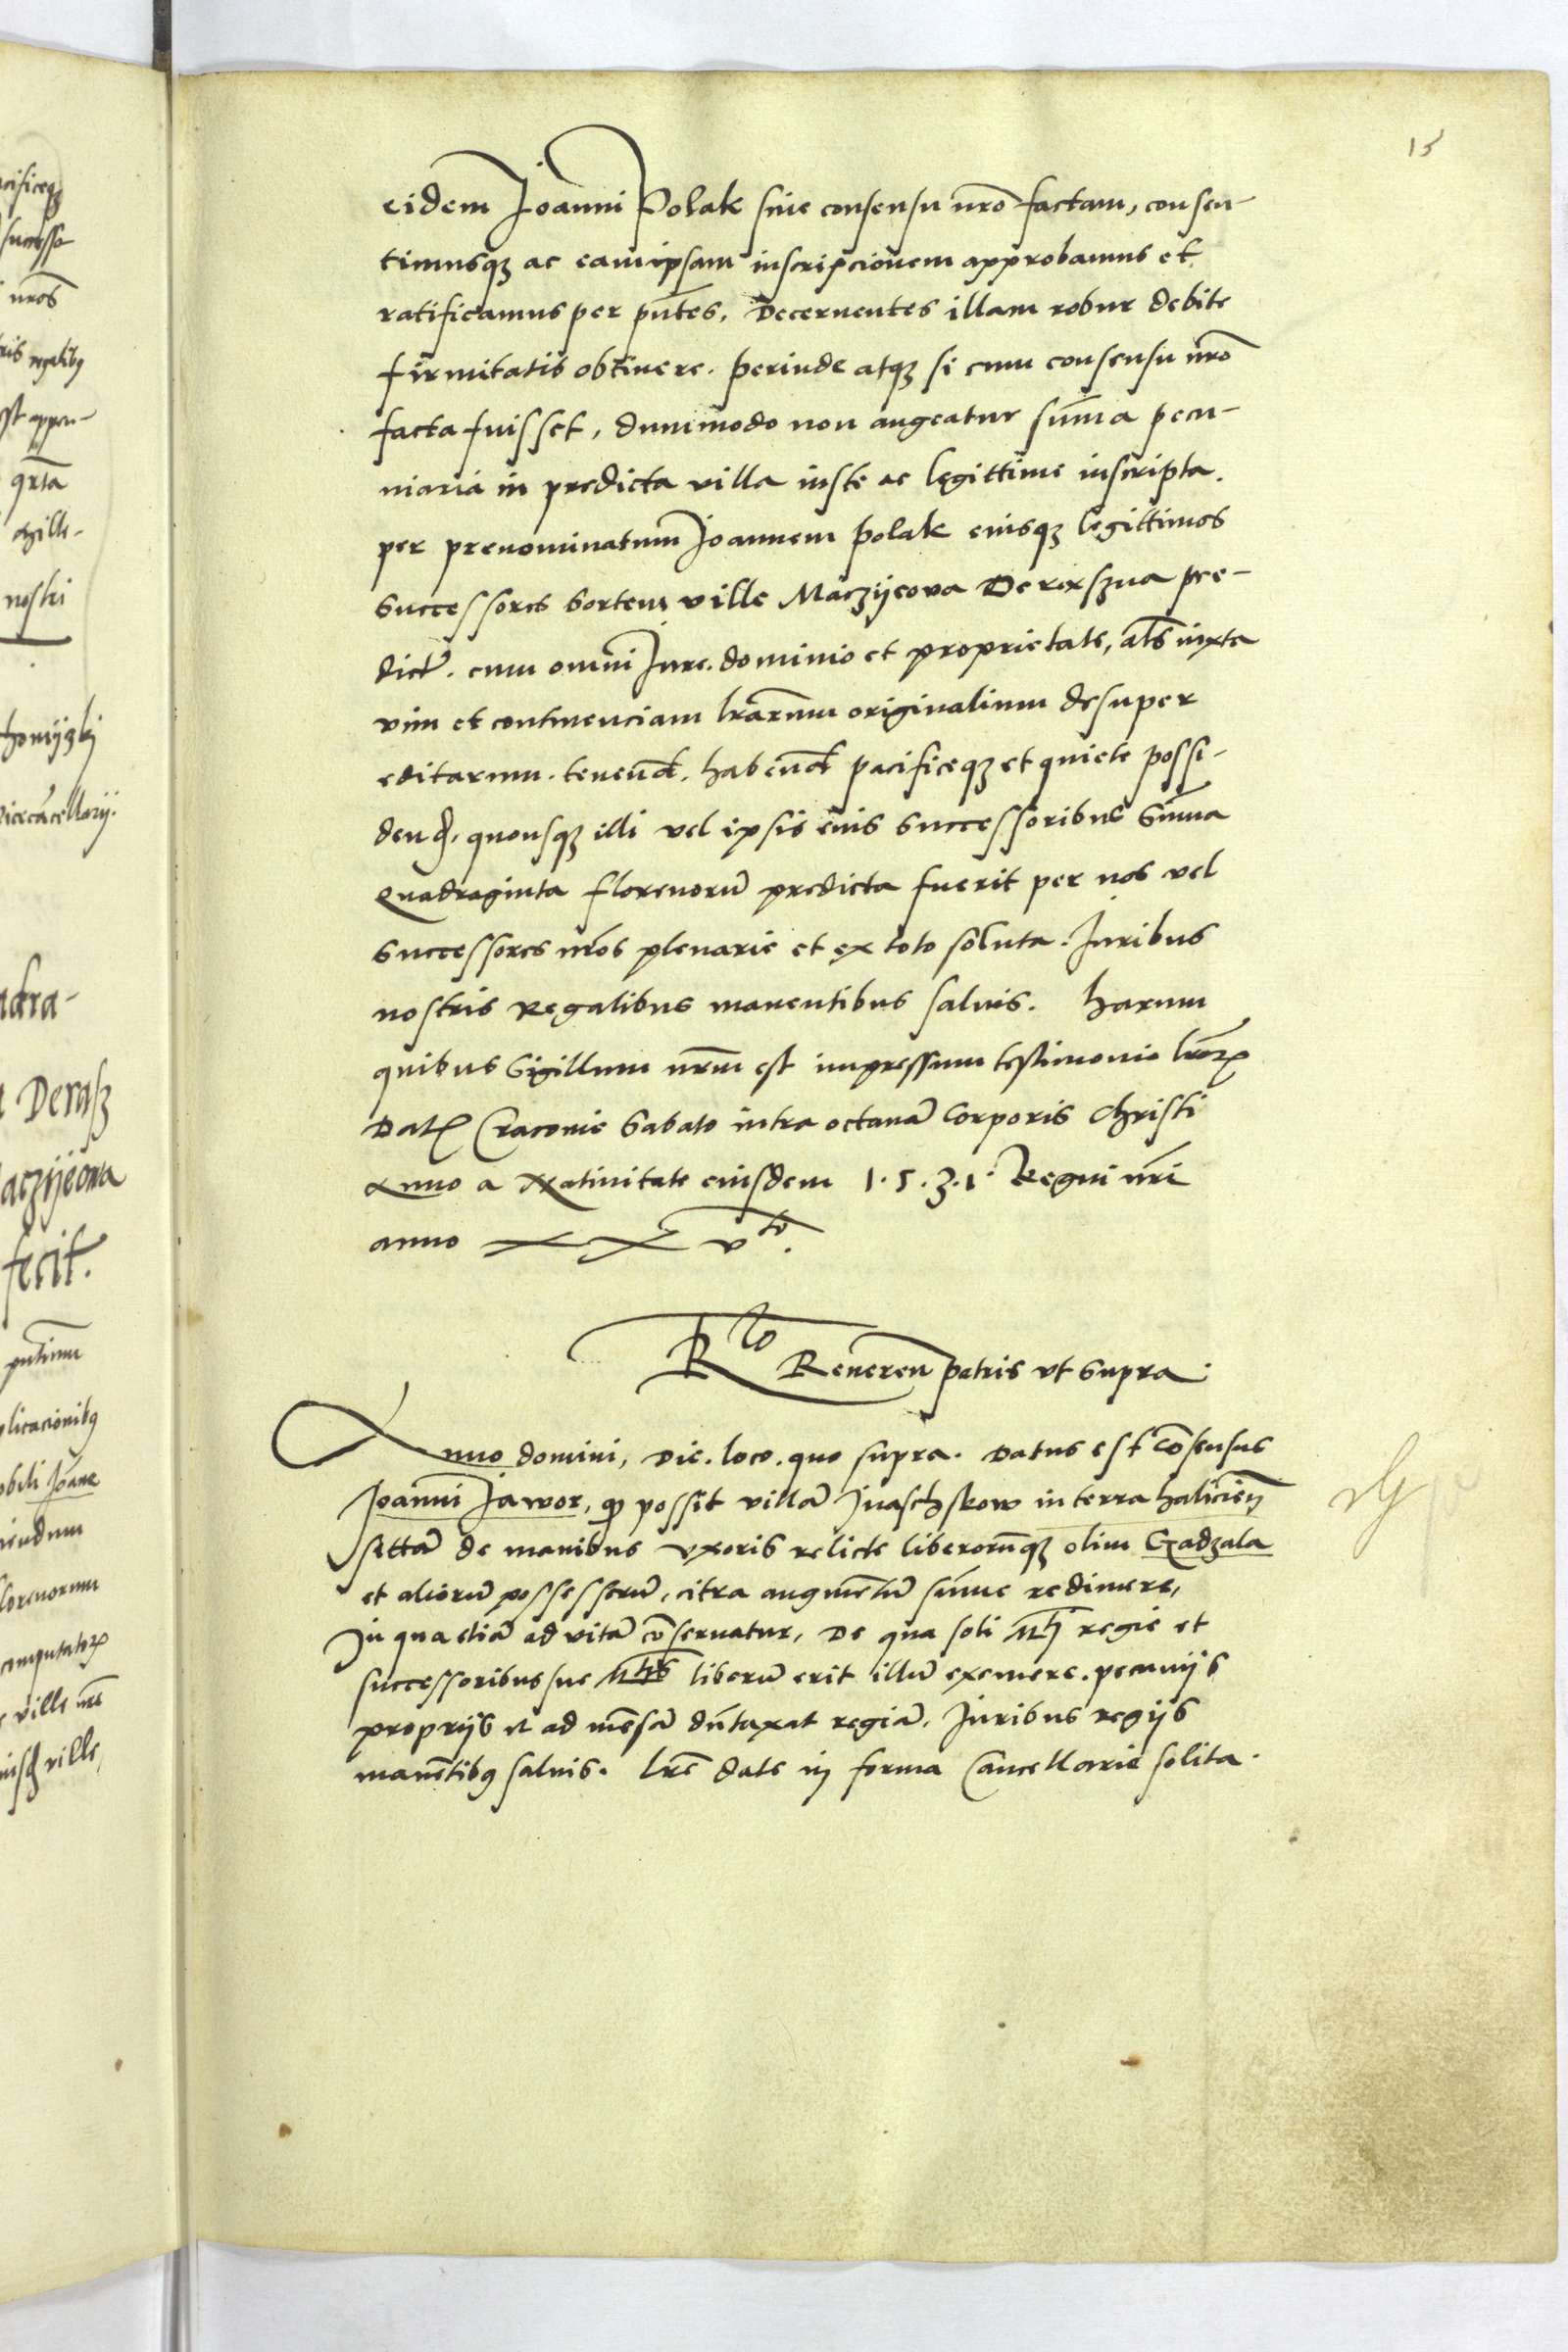 15
eidem Joanni Polak sine consensu nr̄o factam, consen-
timusqʒ ac eam ipsam inscripcionem approbamus et
ratificamus per pn̄tes. Decernentes illam robur debite
firmitatis obtinere. perinde atqʒ si cum consensu nr̄o
facta fuisset, dummodo non augeatur sum̄a pecu-
niaria in predicta villa iuste ac legittime inscripta.
per prenominatum Joannem polak eiusqʒ legittimos
successores sortem ville Maczijeova Derexszna pre-
dict̄. cum omni Jure. dominio et proprietate, al̄s iuxta
vim et continenciam lr̄arum originalium desuper
editarum. tenend̄. habend̄ pacificeqʒ et quiete possi-
dend̄. quousqʒ illi vel ipsis eius successoribus sum̄a
quadraginta florenorū predicta fuerit per nos vel
successores nr̄os plenarie et ex toto soluta. Juribus
nostris Regalibus manentibus saluis. harum
quibus Sigillum nr̄um est impressum testimonio lr̄arꝝ
Datꝝ Craconie Sabato intra octauā Corporis Christi
Anno a Natiuitate eiusdem 1.5.3.1. Regni nr̄i
anno XX vto.
Rlo Reueren patris vt supra.
Anno domini, Die. loco. quo supra. Datus est cōsensus
Joanni Jawor, qȝ possit villā Juaschkow in terra halicień
sittā de manibus vxoris relicte liberorūqʒ olim Gadzala
et aliorū possessorū, citra augmentū sum̄e redimere,
In qua etiā ad vitā cōseruatur, De qua soli Mti regie et
successoribus sue Mtis liberū erit illū exemere. pecunijs
proprijs et ad mēsā dūtaxat regiā. Juribus regijs
manētibꝰ saluis. lr̄e date in forma Cancellarie solita.
cificeqʒ
successo
nr̄os
ris regalibꝰ
est appen-
nostri
viceca̅ncellarij.
adra-
Derasz
aczijeowa
fecit.
plicacionibꝰ
obili Joāne
iendum
florenorum
computatorꝝ
ville nr̄e
ville,